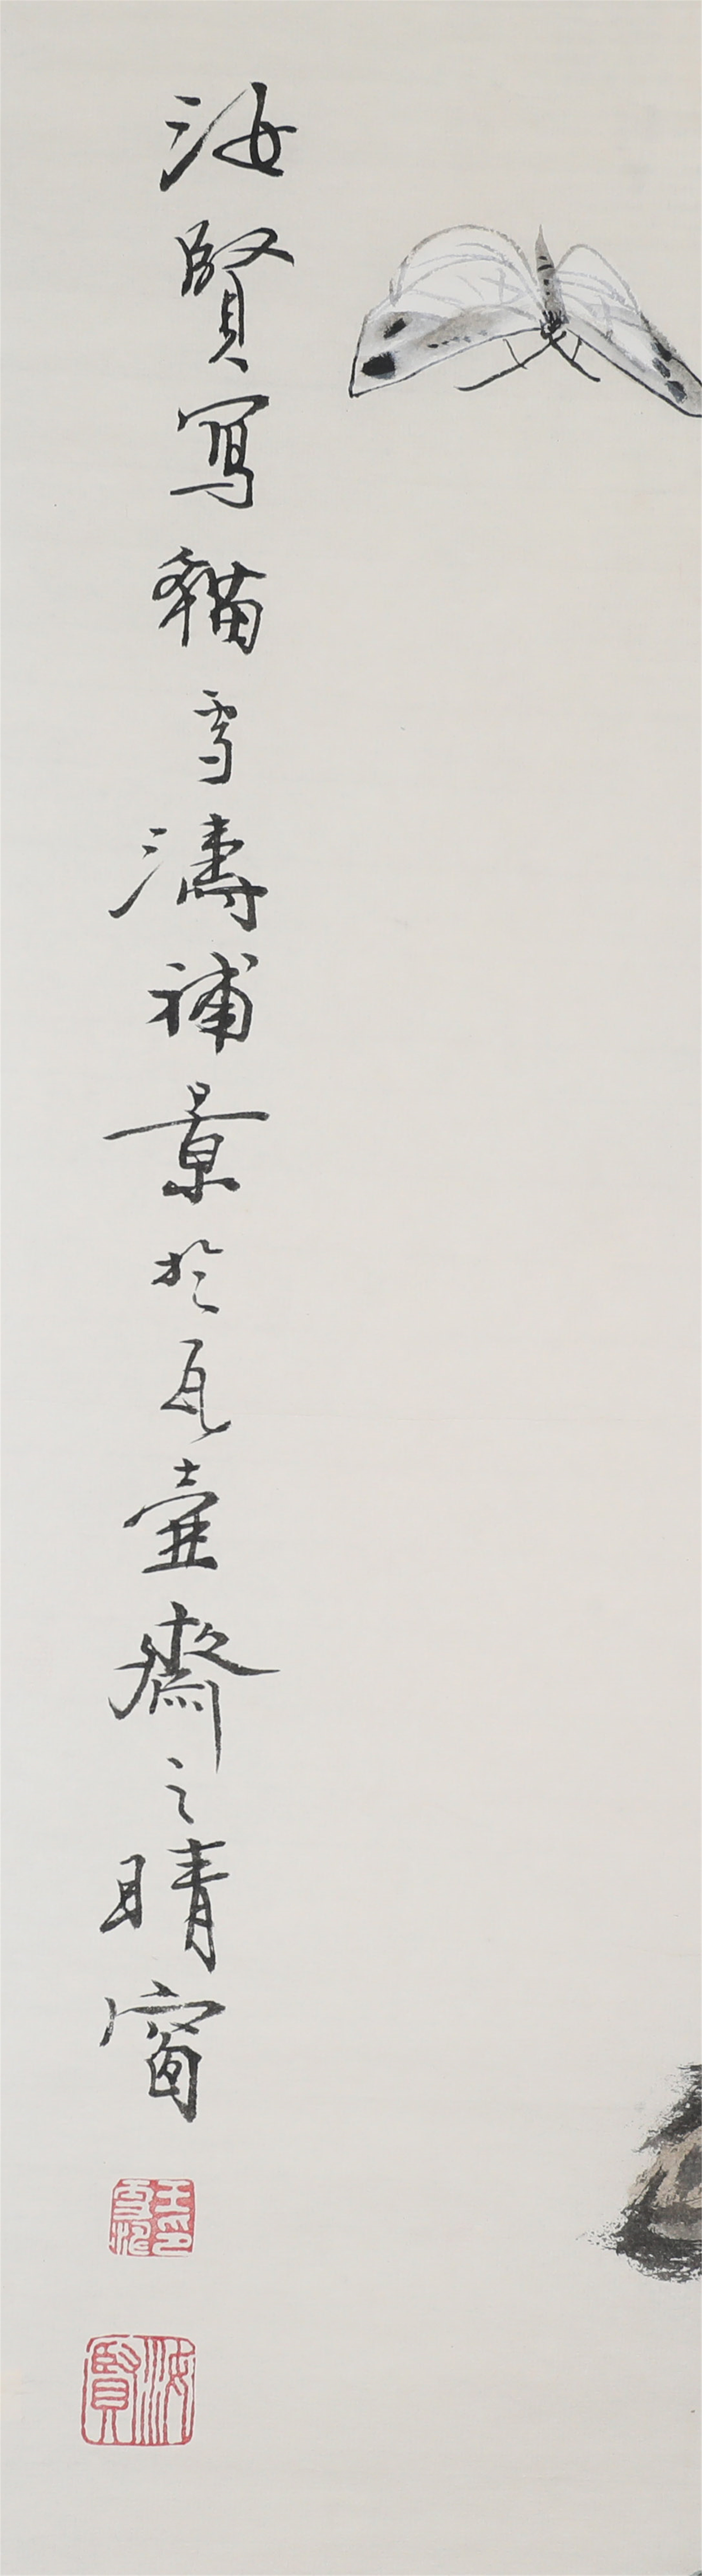 汝賢寫貓雪濤補景於瓦壺齋之晴窗
王雪濤印
汝賢